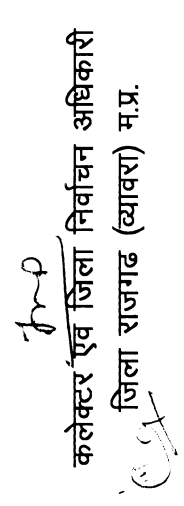 कलेक्टर एवं जिला निर्वाचन अधिकारी
जिला राजगढ (ब्यावरा) म.प्र.